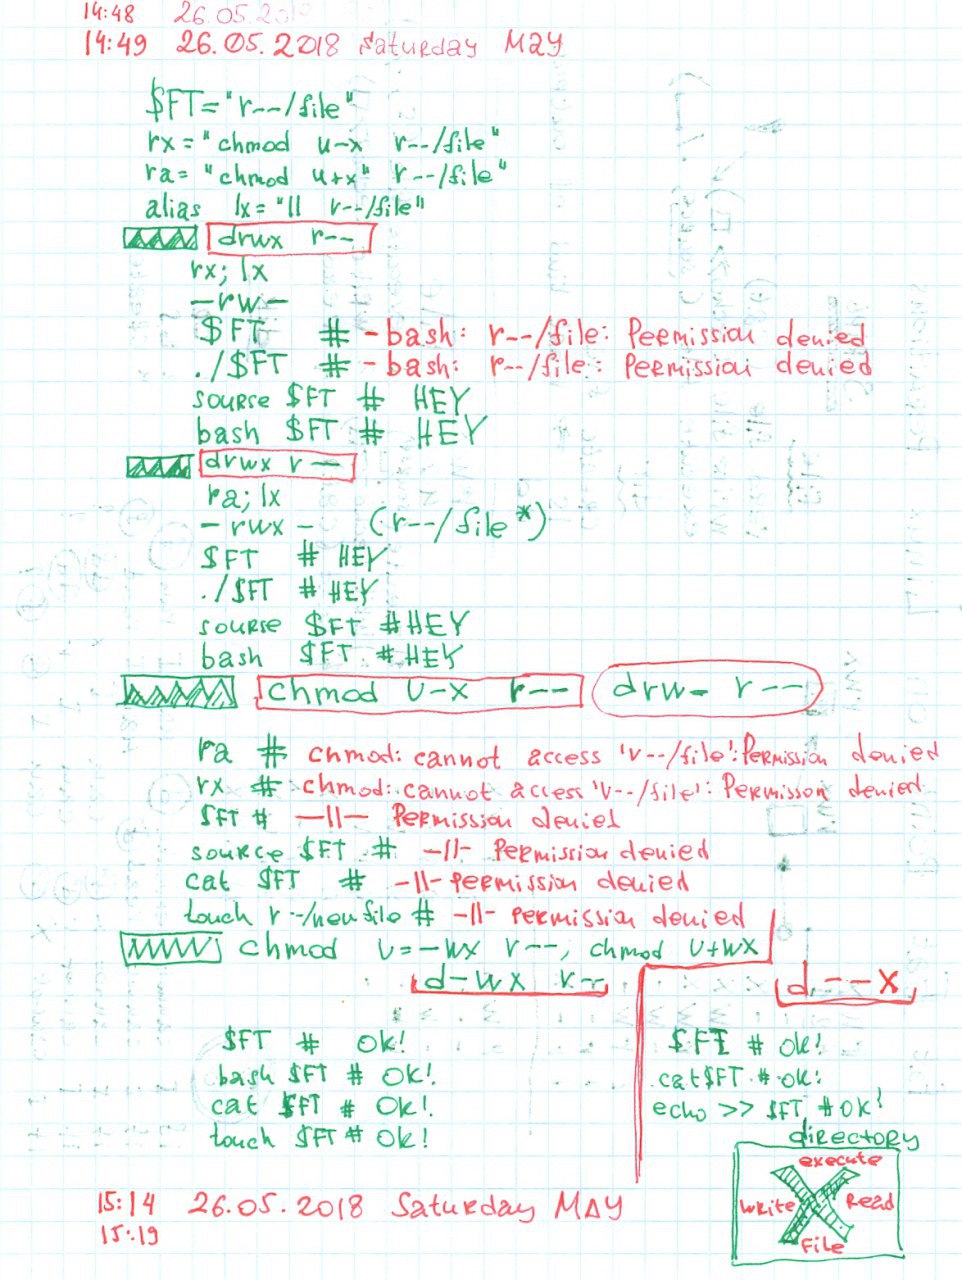 14:48 26.05.2018
14:49 26.05.2018 Saturday MAY
$FT="r--/file"
rx="chmod u-x r--/file"
ra="chmod u+x" r--/file"
alias lx="ll r--/file"
drwx r--
rx; lx
-rw-
$FT # -bash: r--/file: Permission denied
./$FT # -bash: r--/file: Permission denied
sourse $FT # HEY
bash $FT # HEY
drwx r--
ra; lx
-rwx- (r--/file*)
$FT # HEY
./$FT # HEY
sourse $FT # HEY
bash $FT # HEY
chmod u-x r-- drw- r--
ra # chmod: cannot access 'r--/file': Permission denied
rx # chmod: cannot access 'r--/file': Permisson denied
$FT # —||— Permission denied
source $FT # -||- Permission denied
cat $FT # -||- permission denied
touch r--/newfile # -||- permission denied
chmod u=-wx r--, chmod u+wx
d-wx r-- d--x
$FT # Ok!
bash $FT # OK!
cat $FT # OK!
touch $FT # OK!
$FT # Ok!
cat $FT # OK!
echo >> $FT # OK!
directory
execute
write Read
File
15:14 26.05.2018 Saturday MAY
15:19